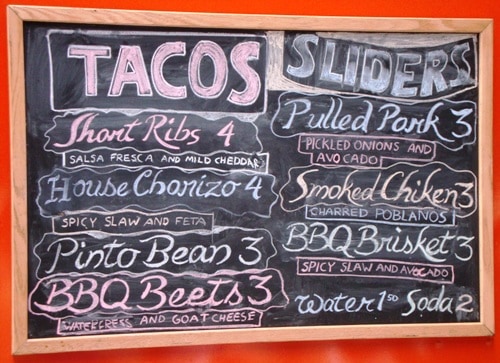 TACOS
Short Ribs 4
SALSA FRESCA AND MILD CHEDDAR
House Chorizo 4
SPICY SLAW AND FETA
Pinto Bean 3
BBQ Beets 3
WATERCRESS AND GOAT CHEESE
SLIDERS
Pulled Pork 3
PICKLED ONIONS AND
AVOCADO
Smoked Chiken 3
CHARRED POBLANOS
BBQ Brisket 3
SPICY SLAW AND AVOCADO
Water 1 50 Soda 2